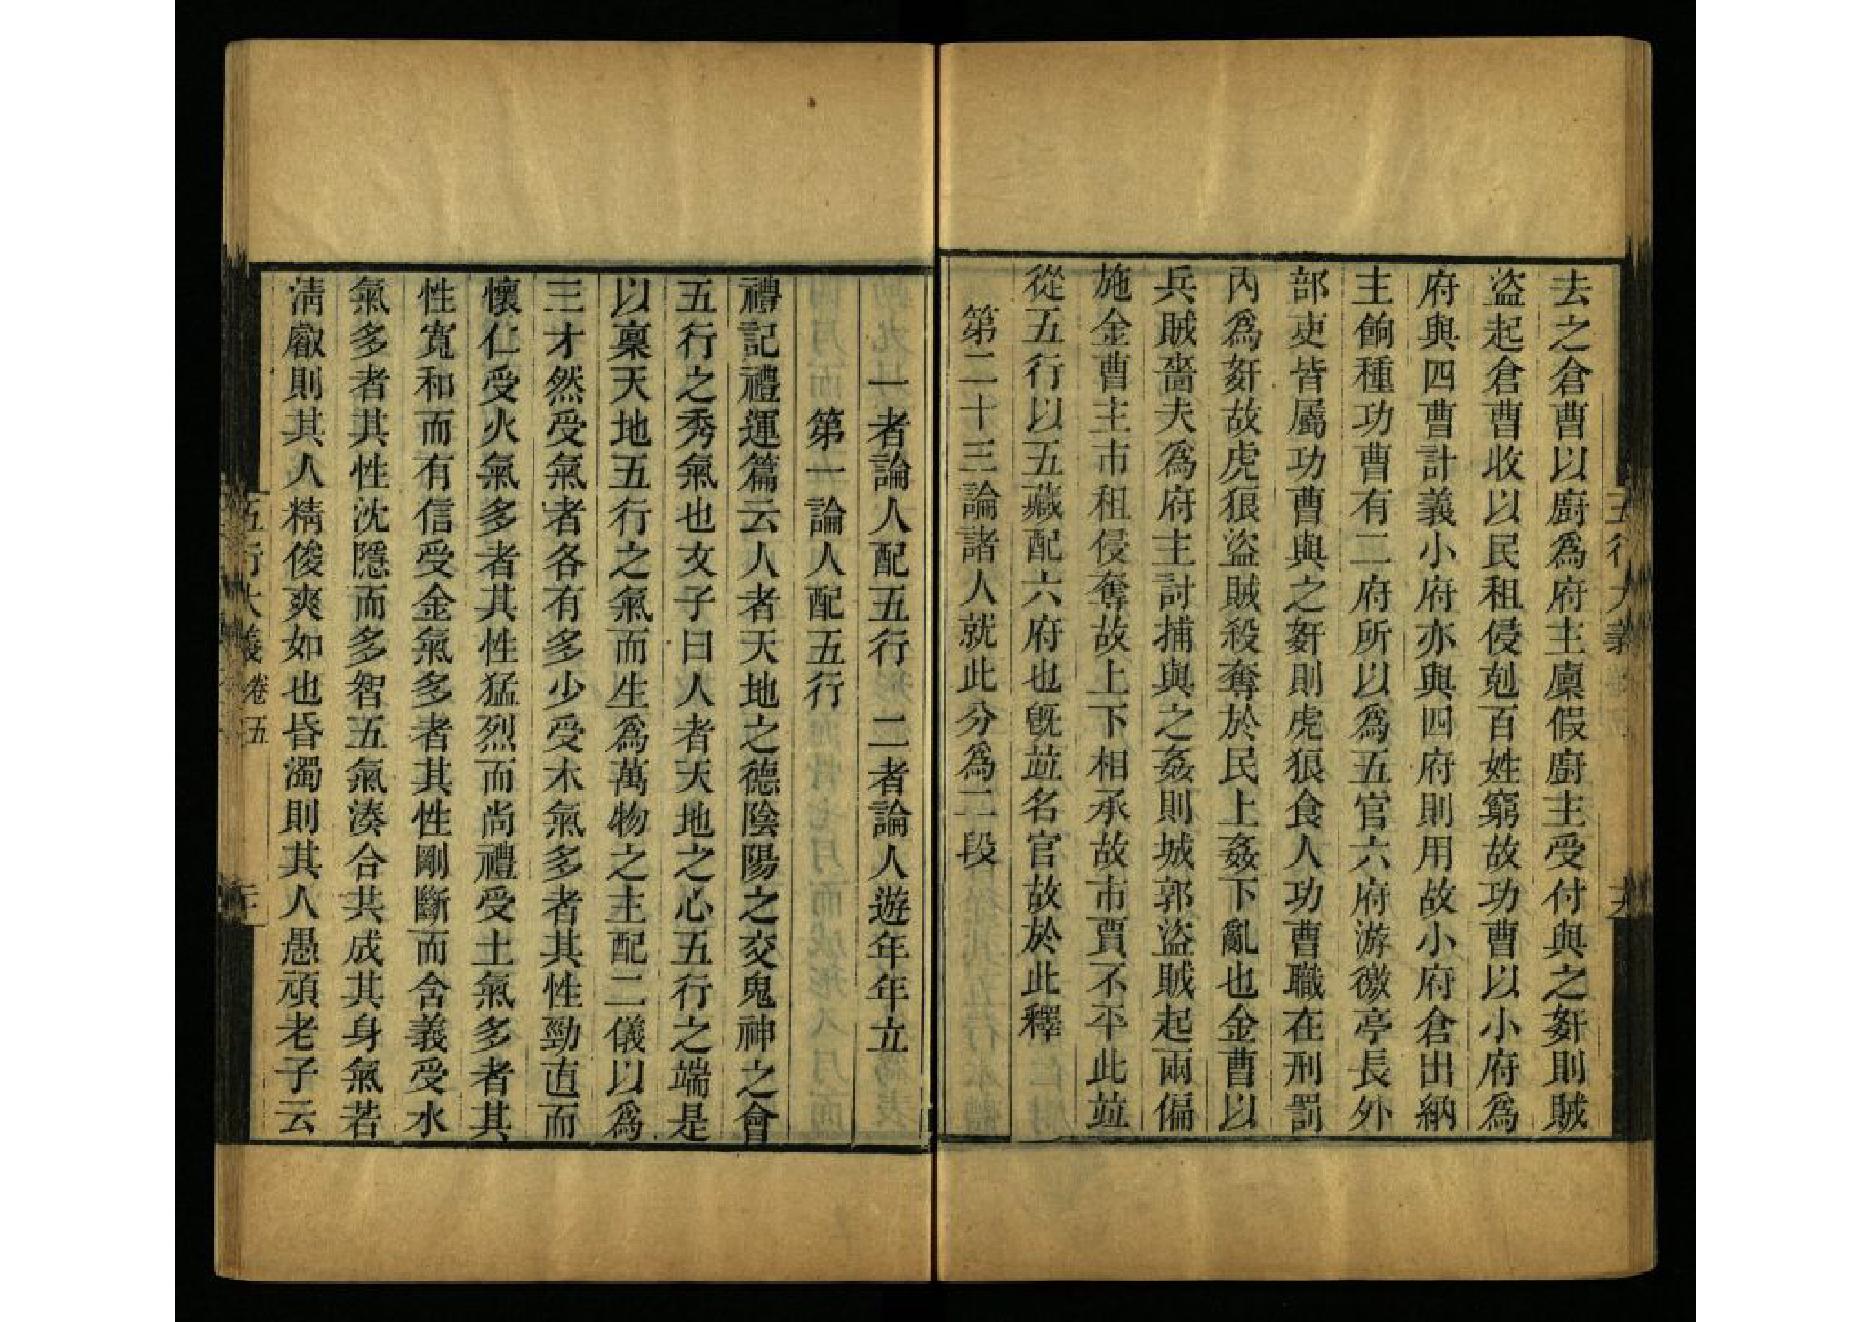 去之倉曹以廚爲府主廩假廚主受付與之姧則賊
盜起倉曹收以民租侵剋百姓窮故功曹以小府爲
府與四曹計義小府亦與四府則用故小府倉出納
主餉種功曹有二府所以爲五官六府游徼亭長外
部吏皆屬功曹與之姧則虎狼食人功曹職在刑罰
內爲姧故虎狼盜賊殺奪於民上姦下亂也金曹以
兵賊嗇夫爲府主討捕與之姦則城郭盜賊起兩偏
施金曹主市租侵奪故上下相承故市賈不平此竝
從五行以五藏配六府也旣竝名官故於此釋
第二十三論諸人就此分爲二段
一者論人配五行 二者論人遊年年立
第一論人配五行
禮記禮運篇云人者天地之德陰陽之交鬼神之會
五行之秀氣也文子曰人者天地之心五行之端是
以稟天地五行之氣而生爲萬物之主配二儀以爲
三才然受氣者各有多少受木氣多者其性勁直而
懷仁受火氣多者其性猛烈而尚禮受土氣多者其
性寬和而有信受金氣多者其性剛斷而含義受水
氣多者其性沈隱而多智五氣湊合共成其身氣若
淸叡則其人精俊爽如也昏濁則其人愚頑老子云
五行大義 卷五